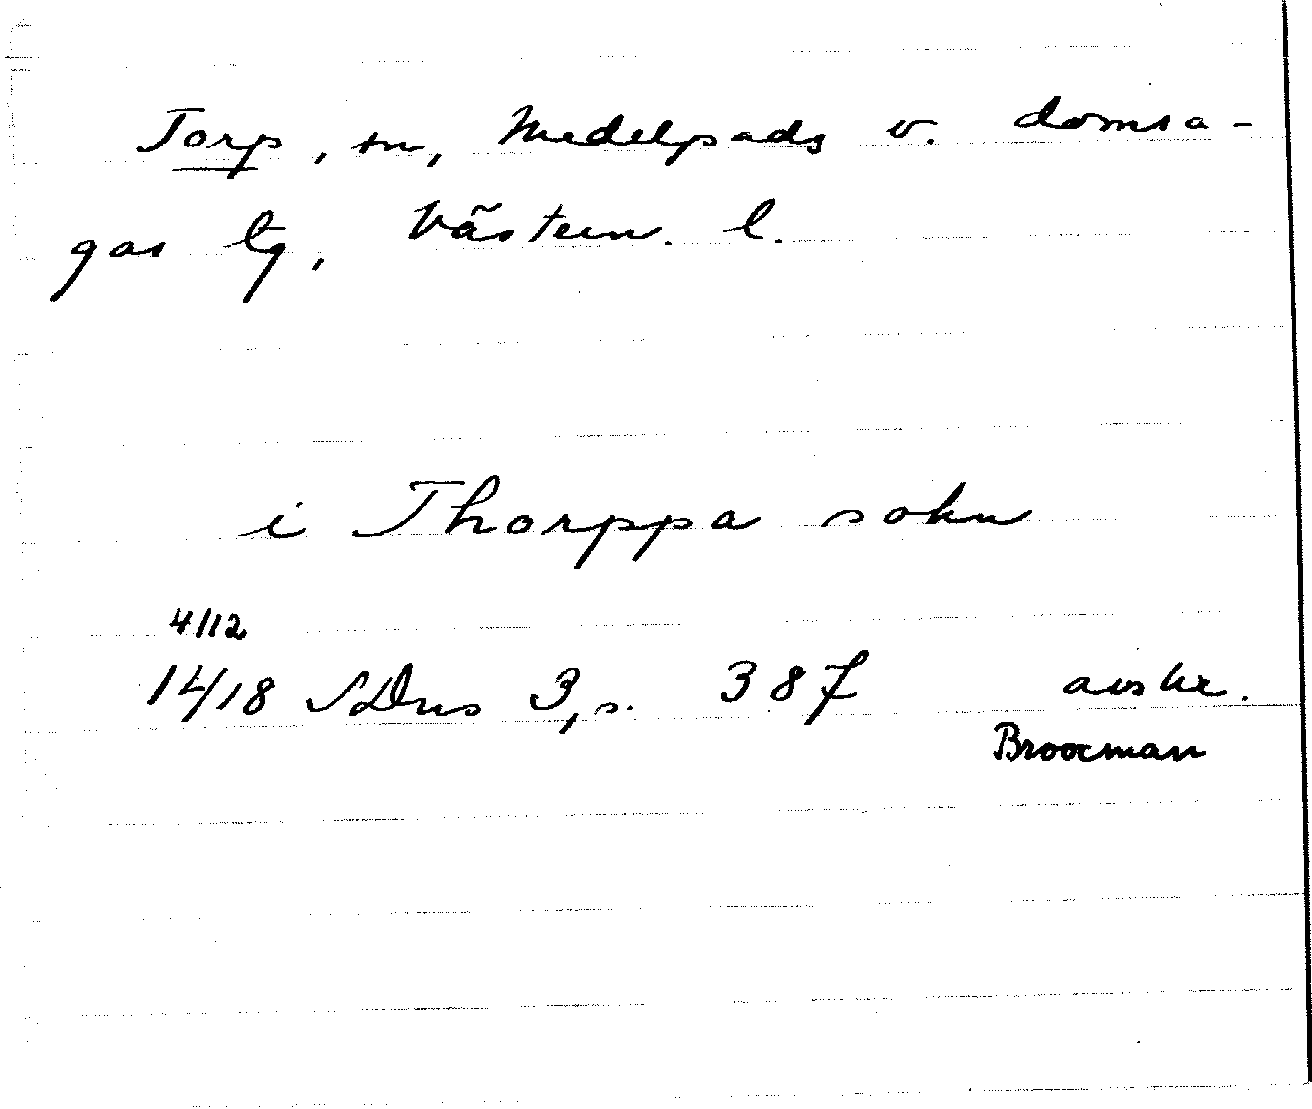 Torp, sn, Medelpads v. domsa-
gas tg, Västern. l.
i Thorppa sokn
4/12
1418 SDns 3, s. 387 avskr.
Brooman